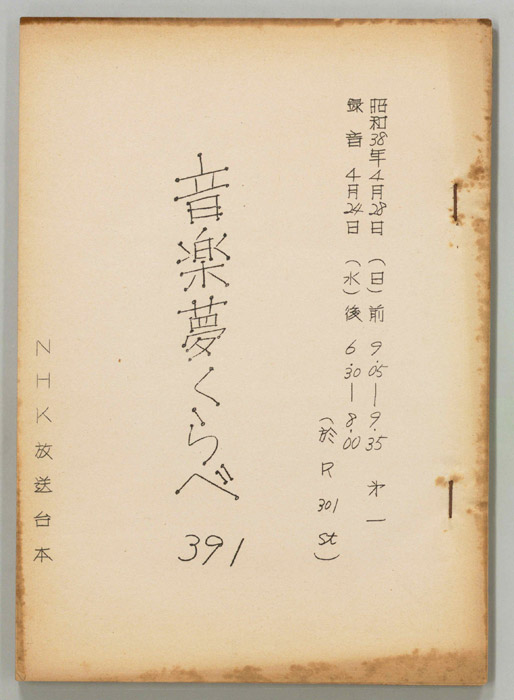 昭和38年4月28日（日）前 9.05―9.35 第一
録音 4月24日（水）後 6.30―8.00
（於 R 301 St）
音楽夢くらべ 391
NHK放送台本